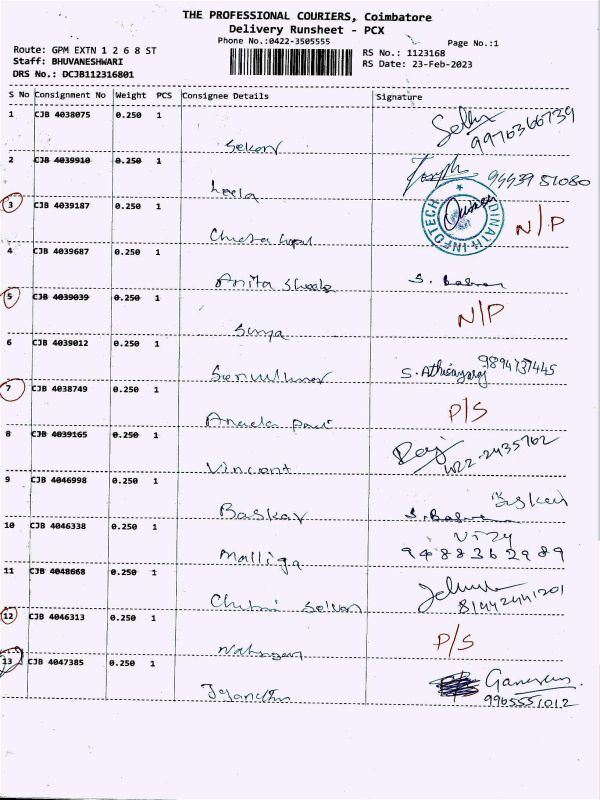 THE PROFESSIONAL COURIERS, Coimbatore
Delivery Runsheet - PCX
Phone No.:0422-3505555
Page No.:1
Route: GPM EXTN 1 2 6 8 ST
RS No.: 1123168
Staff: BHUVANESHWARI
RS Date: 23-Feb-2023
DRS No.: DCJB112316801
S No Consignment No Weight PCS Consignee Details Signature
1 CJB 4038075 0.250 1
Sekar 9976366739
2 CJB 4039910 0.250 1
Leela Joseph
3 CJB 4039187 0.250 1 N/P
DINATH INFOTECH
4 CJB 4039687 0.250 1
Anita Sheela S. Baskar
5 CJB 4039039 0.250 1 N/P
Surya
6 CJB 4039012 0.250 1
S. Athisayaraj 9894737445
7 CJB 4038749 0.250 1 P/S
Angela Paul
8 CJB 4039165 0.250 1
Vincent Raj 0422-2435762
9 CJB 4046998 0.250 1
Baskar S. Baskar
10 CJB 4046338 0.250 1
Malliga 9488362989
11 CJB 4048668 0.250 1
Selvan
12 CJB 4046313 0.250 1 P/S
13 CJB 4047385 0.250 1
Ganesan
9965551012